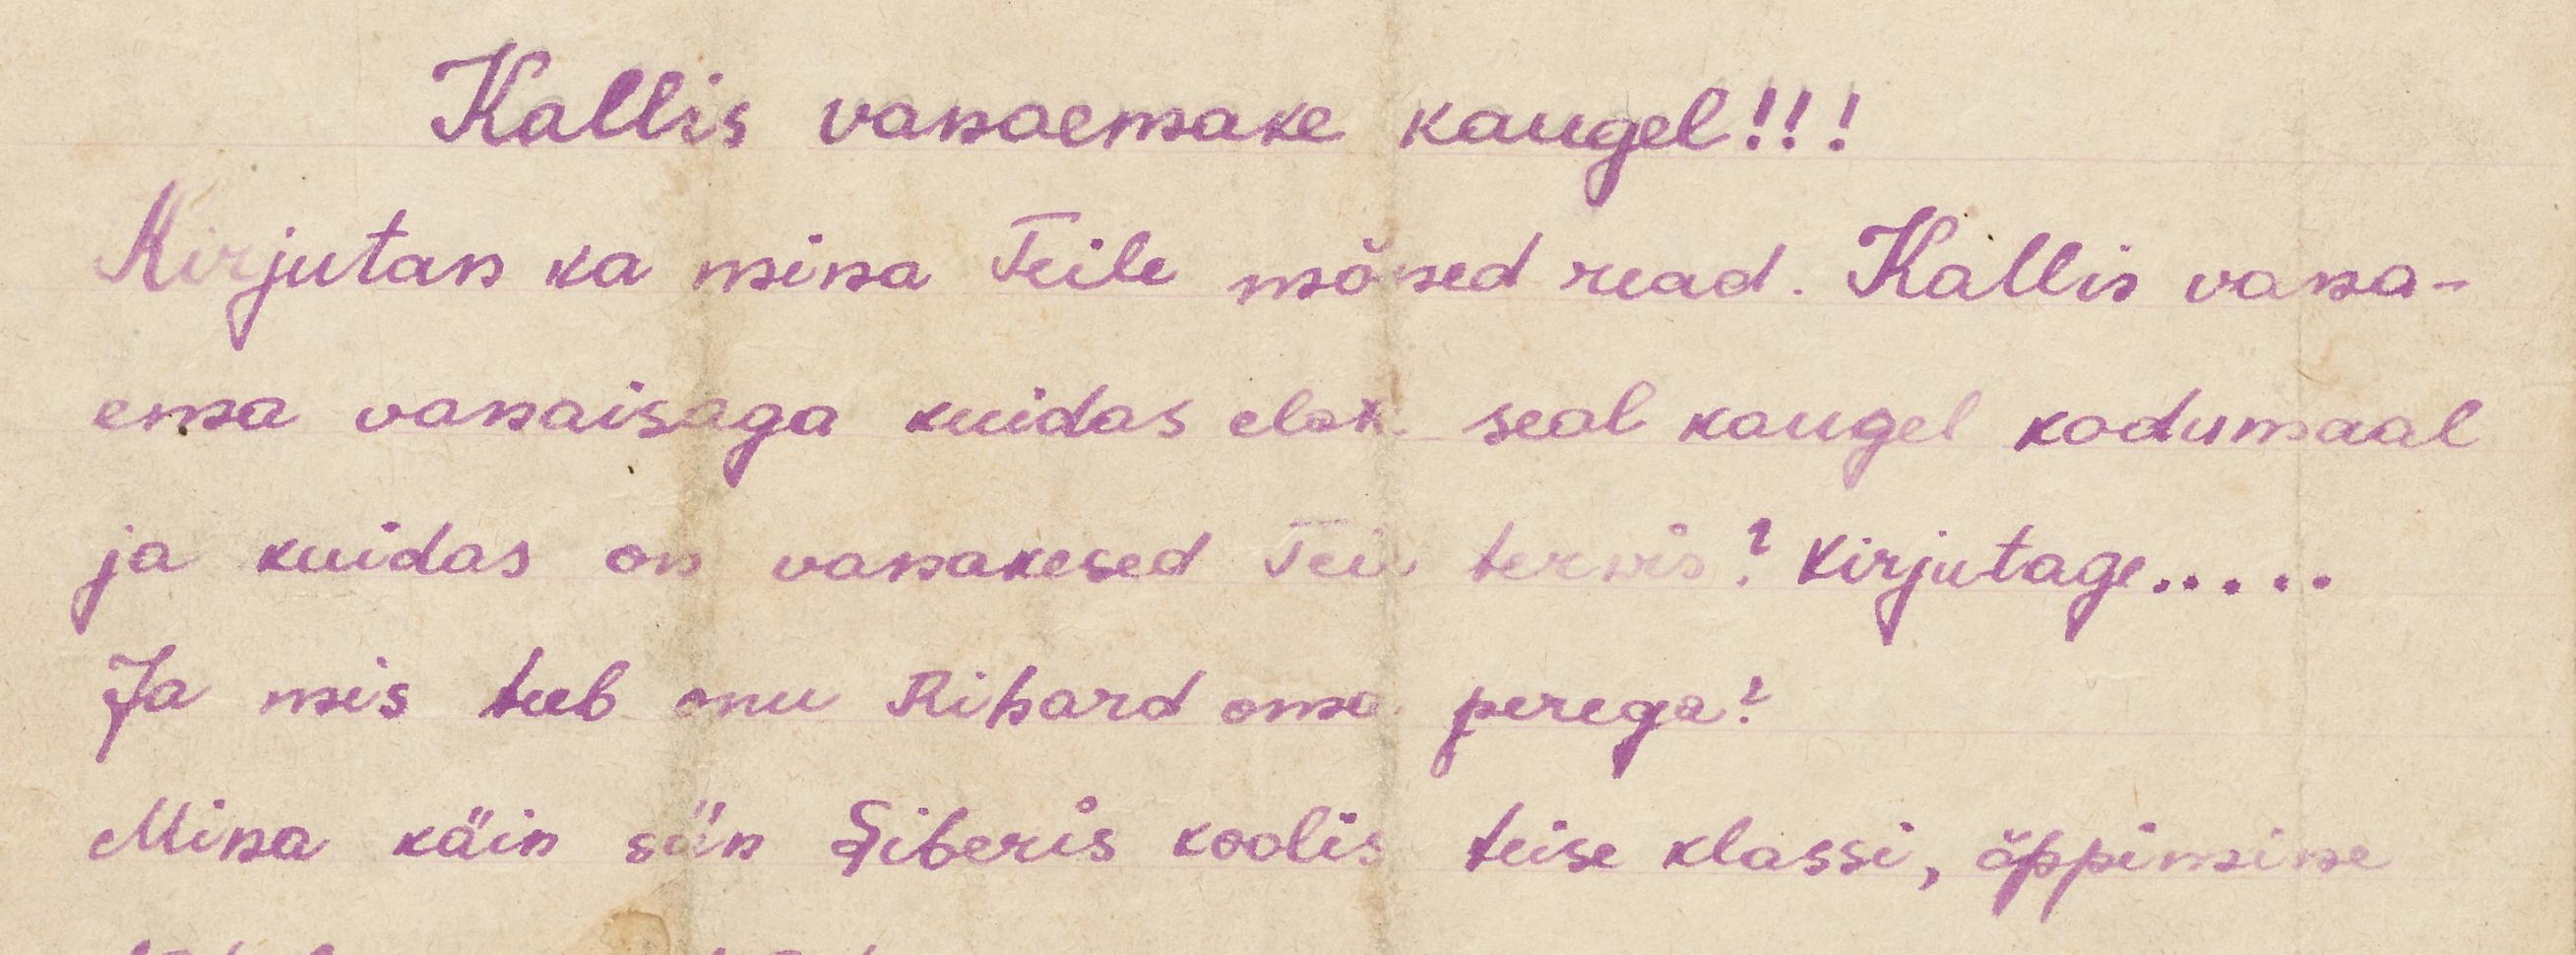 Kallis vanaemake kaugel!!!
Kirjutan ka mina Teile mõned read. Kallis vana-
ema vanaisaga kuidas elat. seal kaugel kodumaal
ja kuidas on vanakesed Teie tervis? Kirjutage.....
Ja mis teeb onu Rihard oma perega?
Mina käin siin Siberis koolis teise klassi, õppimine